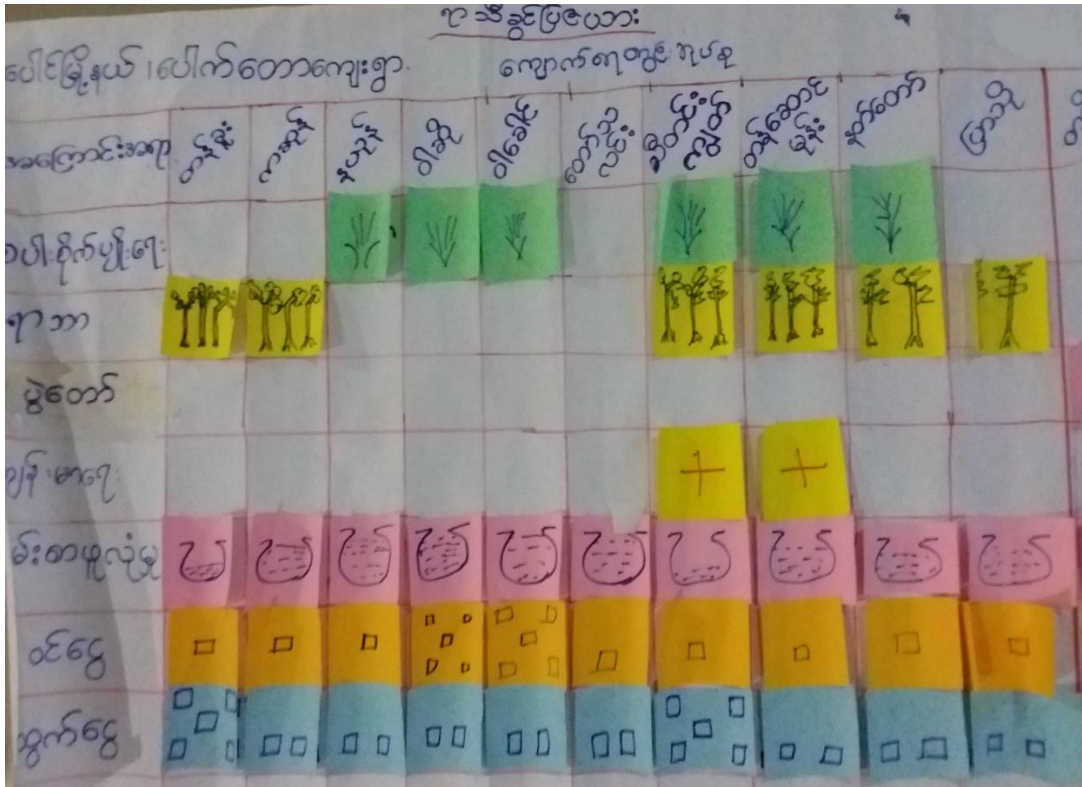 ရာသီခွင်ပြဇယား
ပေါင်မြို့နယ်၊ ပေါက်တောကျေးရွာ.
ကျောက်ရေတွင်း ရပ်စု
အကြောင်းအရာ တန်ခူး ကဆုန် နယုန် ဝါဆို ဝါခေါင် တော်သလင်း သီတင်းကျွတ် တန်ဆောင်မုန်း နတ်တော် ပြာသို
စပါးစိုက်ပျိုးရေး
ရာဘာ
ပွဲတော်
ကျန်းမာရေး
ဝင်ငွေ
ထွက်ငွေ